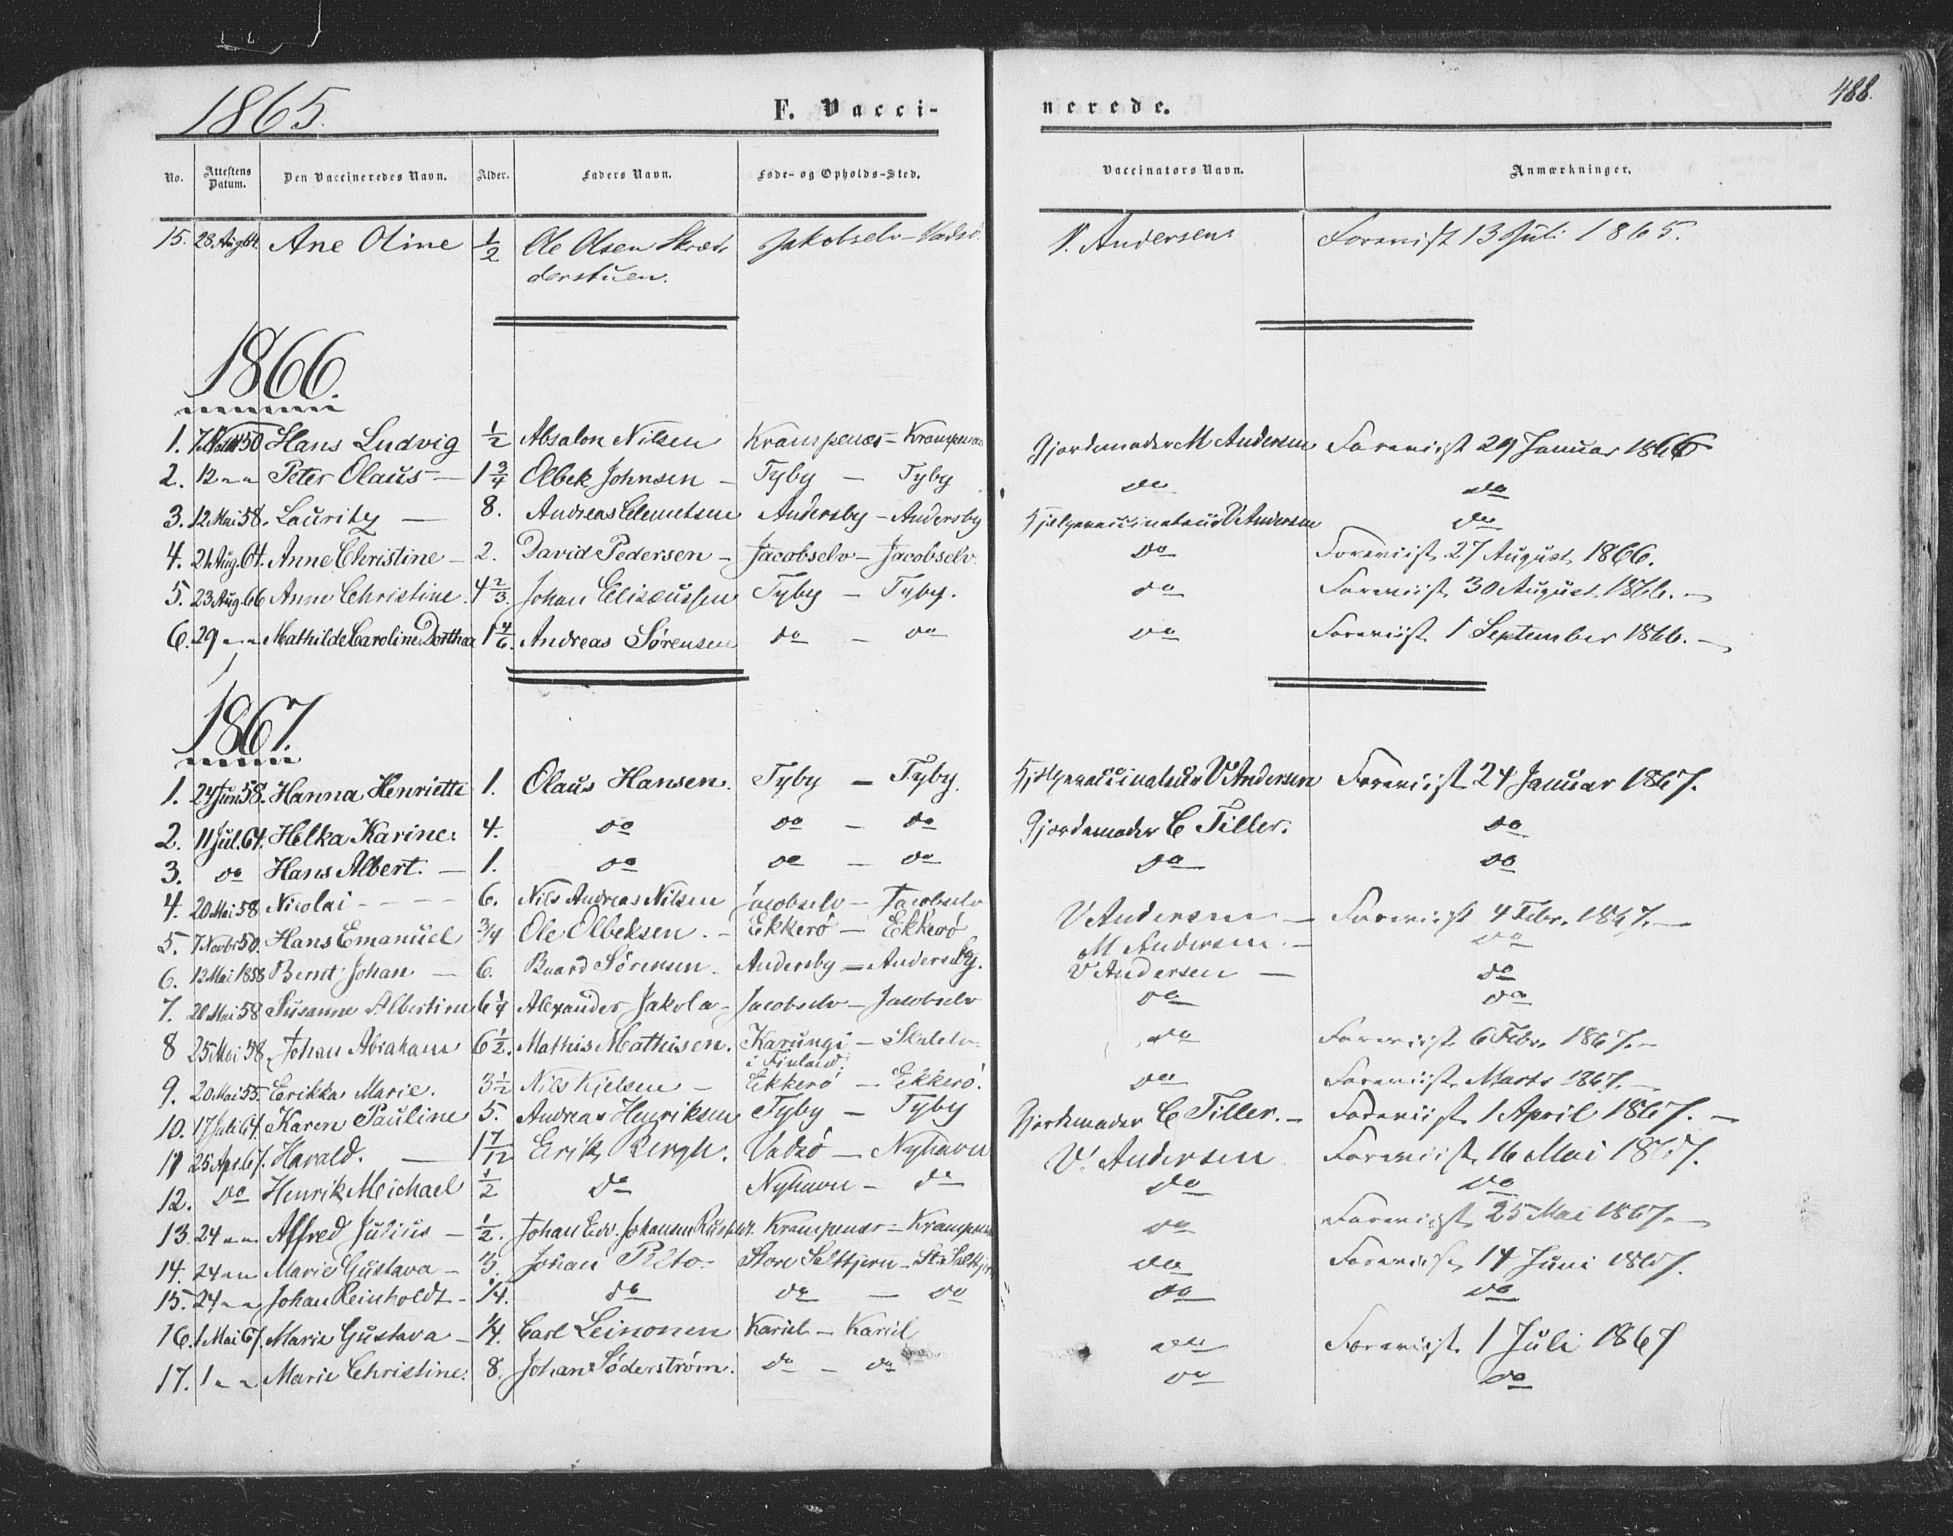 1865.
F. Vacci-
nerede.
488.
No. Attestens Datum. Den Vaccineredes Navn. Alder. Faders Navn. Føde- og Opholds-Sted. Vaccinators Navn. Anmærkninger.
15. 28. Aug 64 Ane Oline 1/2 Ole Olsen Skræd- Jakobselv - Vadsø. V. Andersen Foreviist 13 Juli 1865.
derstuen.
1866.
1. 50 Hans Ludvig 1/2 Absalon Nilsen Krampenæs - Krampenæs Gjordemoder M Andersen Foreviist 29 Januar 1866
2. 12 " " Peter Olaus - 1 3/4 Olbek Johnsen - Tyby - Tyby do do
3. 12 Mai 58. Lauritz - 8. Andreas Clemetsen Andersby - Andersby Hjelpevaccinateur V Andersen do
4. 21 Aug. 64. Anne Christine - 2. David Pedersen - Jacobselv - Jacobselv do Foreviist 27 August 1866.
5. 23 Aug 66 Anne Christine. 4 2/3. Johan Elisæussen Tyby - Tyby. do Foreviist 30 August 1866. -
6. 29 " " Mathilde Caroline Dorthea 1 4/6. Andreas Sørensen do - do do Foreviist 1 September 1866. -
1867.
1. 24 Juni 58. Hanna Henriette 1. Olaus Hansen. Tyby - Tyby. Hjelpevaccinateur V Andersen Foreviist 24 Januar 1867.
2. 11 Jul. 64. Helka Karine. 4. do do - do Gjordemoder C Tiller. do
3. do Hans Albert. - 1. do do - do do do
4. 20 Mai 58 Nicolai - - - - 6. Nils Andreas Nilsen Jacobselv - Jacobselv V Andersen - Foreviist 4 Febr. 1867. -
5. 7 Novbr 50. Hans Emanuel 3/4 Ole Olbeksen. - Ekkerø - Ekkerø M Andersen. - do
6. 12 Mai 1858 Bernt Johan - 6. Baard Sørensen. Andersby - Andersby. V Andersen - do
7. 20 Mai 58 Susanne Albertine 6 1/4 Alexander Jakola - Jacobselv - Jacobselv do do
8 25 Mai 58. Johan Abraham 6 1/2. Mathis Mathisen. Karungi - do Foreviist 6 Febr. 1867. -
i Finland.
9. 20 Mai 55. Erikka Marie. 3 1/2 Nils Kjelsen - Ekkerø - Ekkerø. do Foreviist Marts 1867. -
10. 17 Juli 64. Karen Pauline 5. Andreas Henriksen Tyby - Tyby Gjordemoder C Tiller. - Foreviist 1 April 1867. -
11 25 Apr. 67. Harald. - 1 7/12 Erik Bergh. Vadsø - Nyhavn V. Andersen Foreviist 16 Mai 1867.
12. do Henrik Meichael 1/2 do Nyhavn - do do do
13. 24 " " Alfred Julius - 1/2. Johan Edv. Johansen Krampenæs - Krampenæs do Foreviist 25 Mai 1867. -
14. 24 " " Marie Gustava - 3. Johan Pelto - Store do Foreviist 14 Juni 1867.
15. 24 " " Johan Reinholdt - 1/4. do do - do do do
16. 1 Mai 67. Marie Gustava - 1/4. Carl Leinonen Kariel - Kariel do Foreviist 1 Juli 1867
17. 1 " " Marie Christine. 8. Johan Söderström. do - do do do